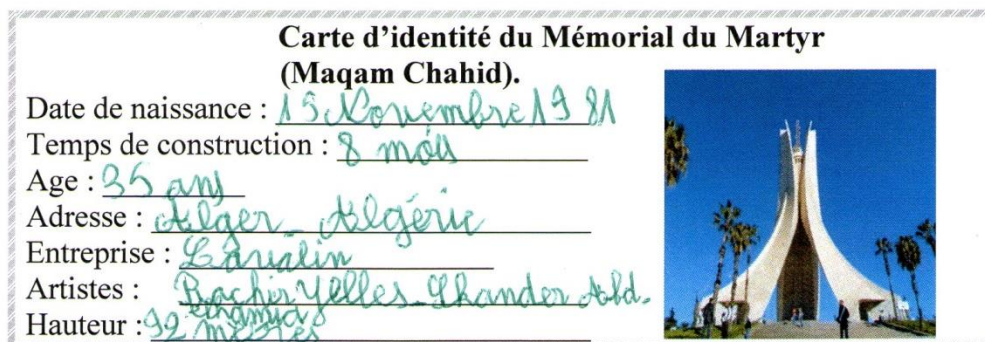 Carte d’identité du Mémorial du Martyr
(Maqam Chahid).
Date de naissance : 15 Novembre 1981
Temps de construction : 8 mois
Age : 35 ans
Adresse : Alger_ Algérie
Entreprise : Lavalin
Artistes : Bachir Yelles_ Ghander Abd-
elhamid
Hauteur : 92 mètres